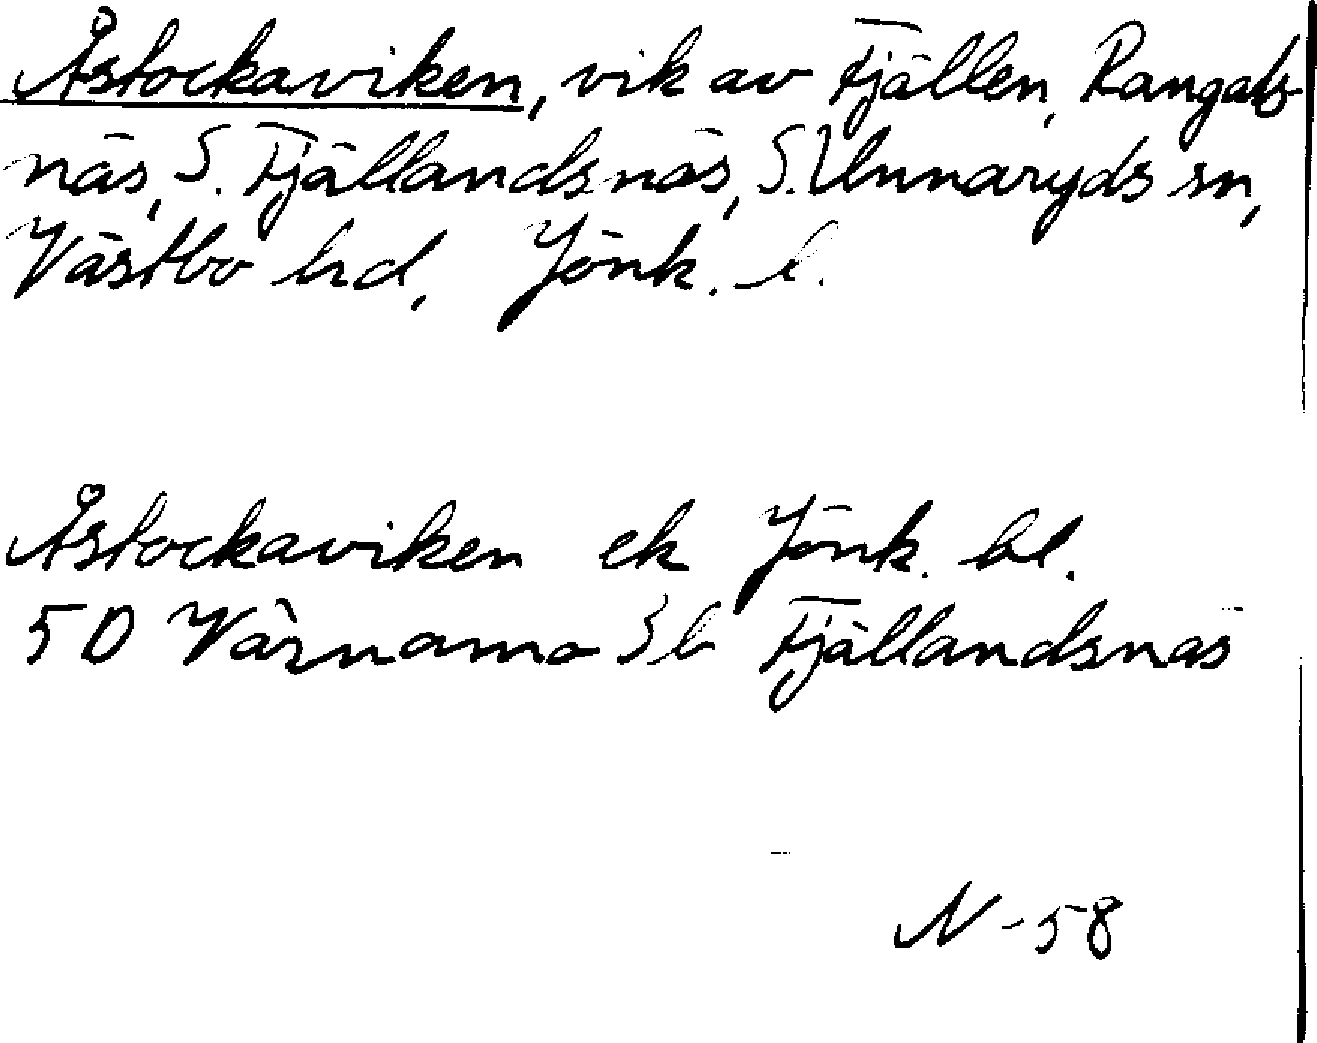 Åstockaviken, vik av Fjällen, Rangals-
näs, S. Fjällandsnäs, S. Unnaryds sn,
Västbo hd, Jönk. l.
Åstockaviken ek Jönk. bl.
5D Värnamo 3b Fjällandsnäs
N-58